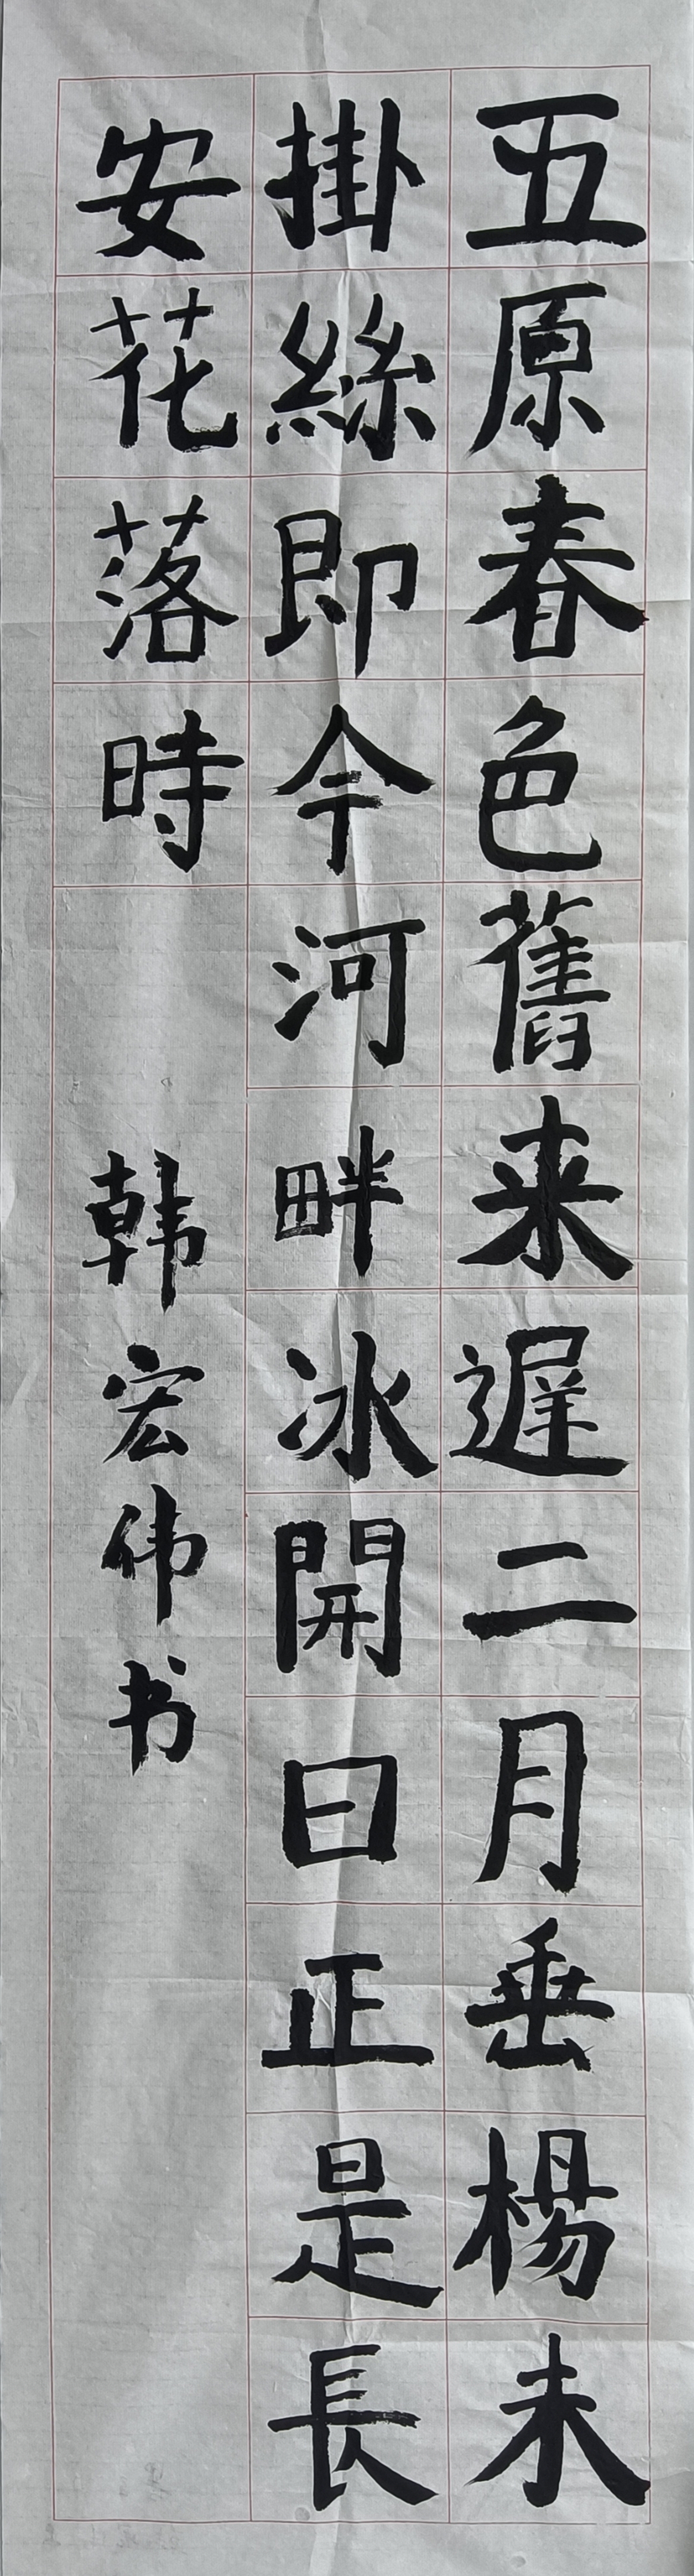 五原春色舊来遲二月垂楊未
掛絲即今河畔冰開日正是長
安花落時
韩宏伟书